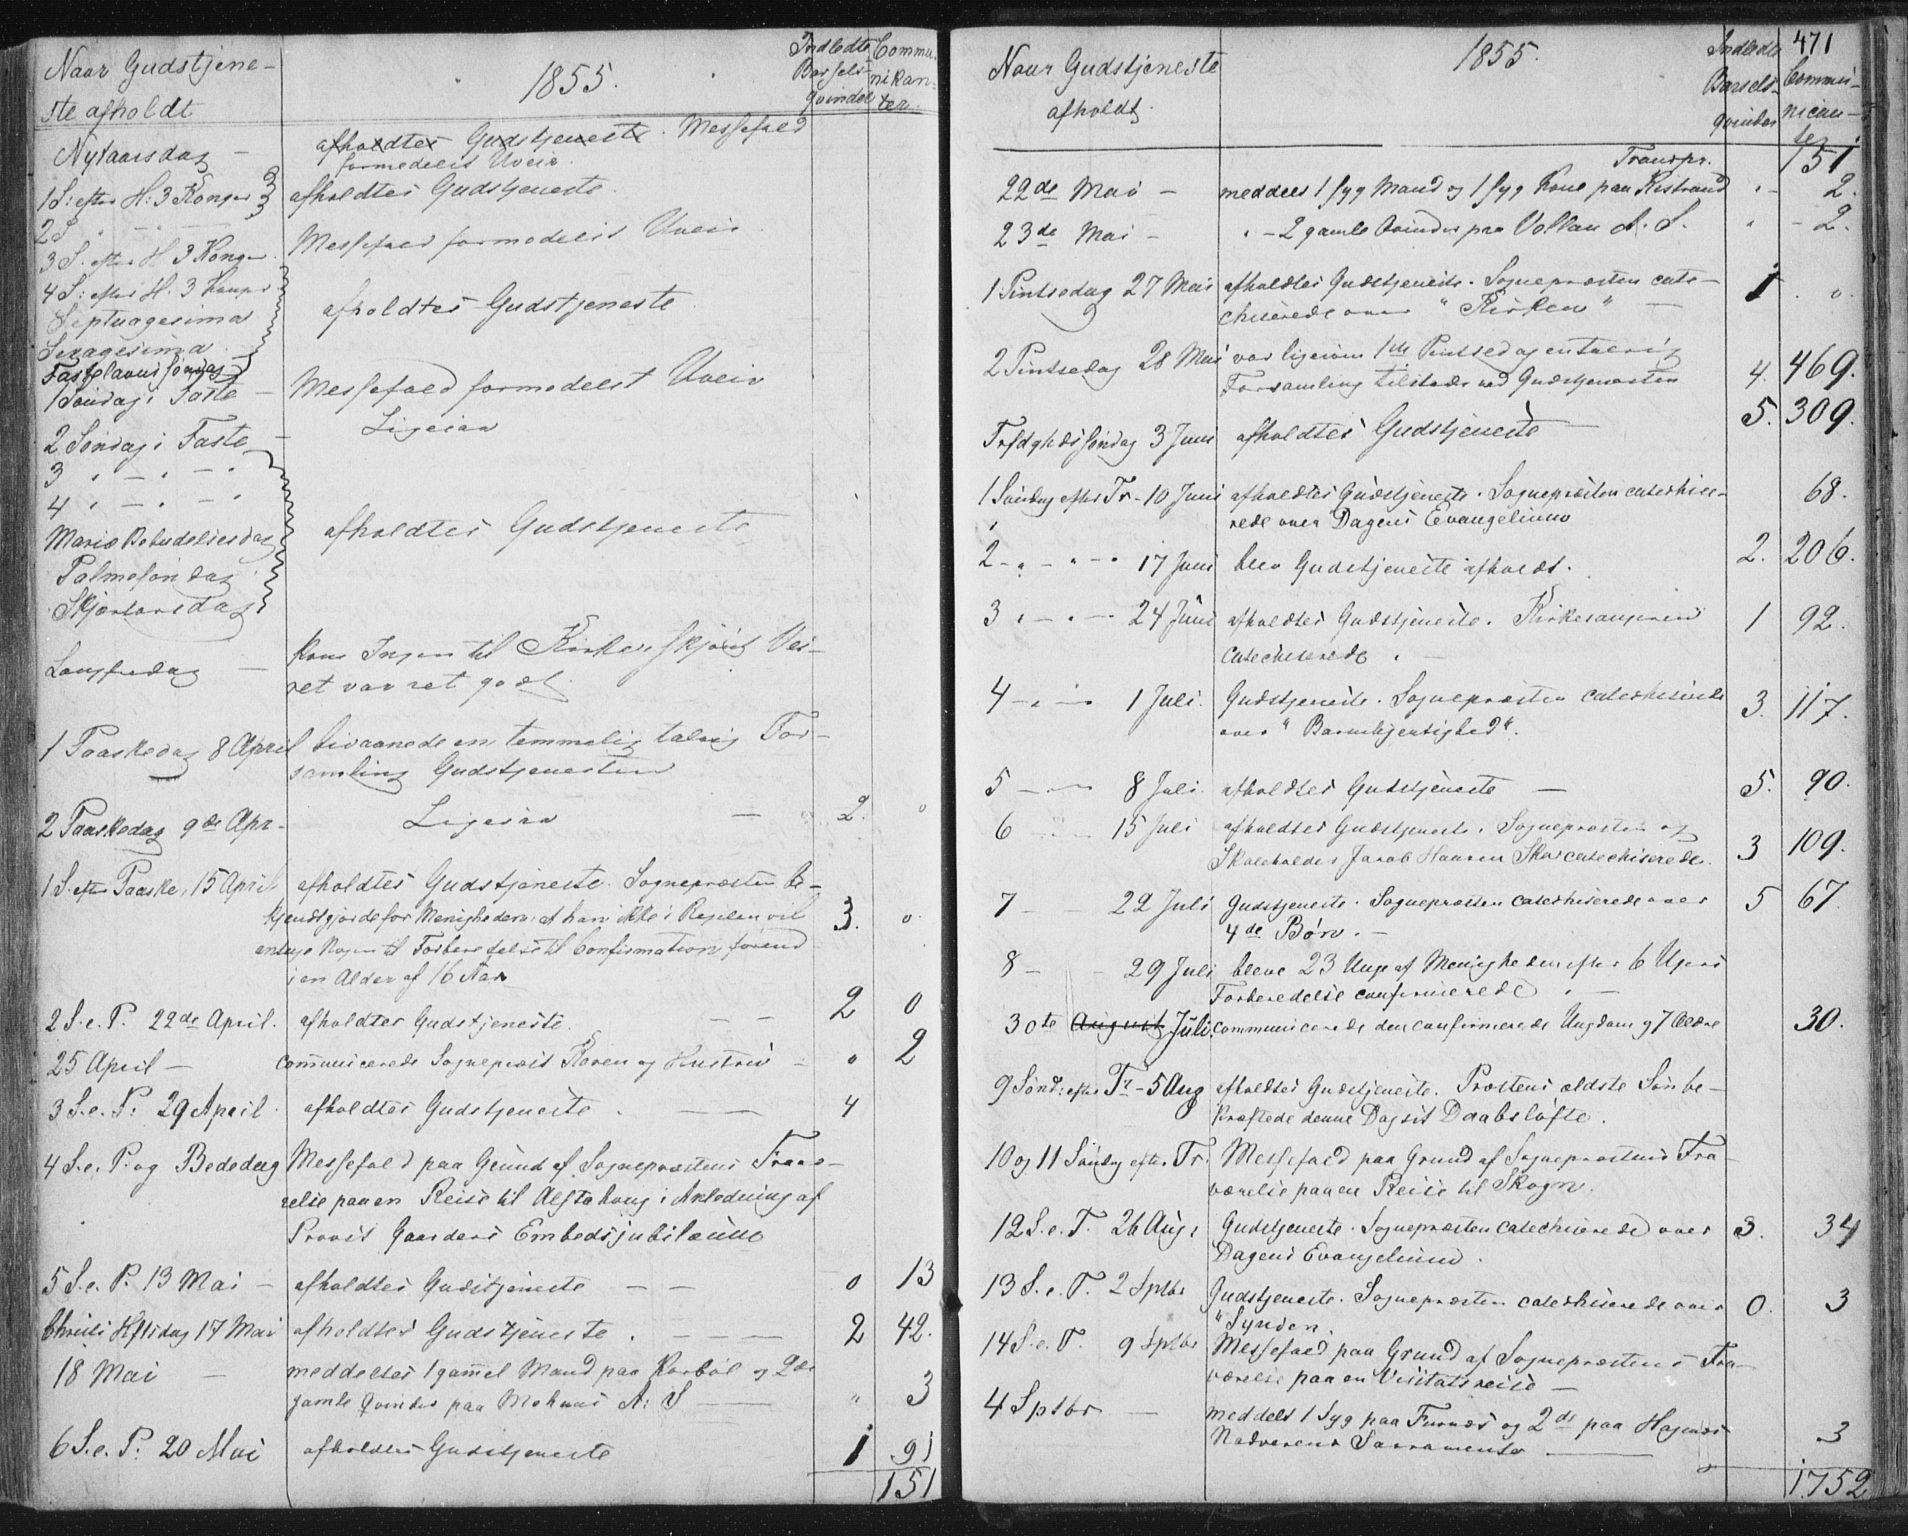 Naar Gudstjene-
ste afholdt
1855.
Indledte
Barsel-
qvinder
Commu-
nikan-
ter.
Nytaarsdag - afholdtes Gudstjeneste. Messefald
formedelst Uveir.
1 S: efter H: 3 Konger afholdtes Gudstjeneste.
2 S " - " -
3 S. efter H 3 Konger. Messefald formedelst Uveir
4 S: efter H. 3 Konger
Septuagesima afholdtes Gudstjeneste
Sexagesima
Fastelavnssøndag
1 Søndag i Faste - Messefald formedelst Uveir
2 Søndag i Faste - Ligesaa
3 " - " - "
4 " - " - "
Mariæ Bebudelsesdag afholdtes Gudstjeneste
Palmesøndag
Skjærtorsdag
Langfredag - kom Ingen til Kirke, skjønt Vei-
ret var ret godt.
1 Paaskedag 8 April bivaanede en temmelig talrig For-
samling Gudstjenesten
2 Paaskedag 9de Apr. Ligesaa - 2. "
1 S. efter Paaske, 15 April afholdtes Gudstjeneste. Sognepræsten be-
kjendtgjorde for Menigheden at han ikke i Regelen vil 3. o.
antage Nogen til Forberedelse til Confirmation førend
i en Alder af 16 Aar
2 S. e. P. 22de April. afholdtes Gudstjeneste. - - 2 0
25 April - communicerede Sogneprest Koren og Hustru - o 2
3 S. e. P: 29 April. afholdtes Gudstjeneste. - - 4
4 S. e. P. og Bededag Messefald paa Grund af Sognepræstens Fravæ-
relse paa en Reise til Alstahoug i Anledning af
Provst Gaarders Embedsjubilæum
5 S. e. P. 13 Mai - afholdtes Gudstjeneste - - 0 13
Christi Hftsdag 17 Mai afholdtes Gudstjeneste. - - - 2 42.
18 Mai - meddeeltes 1 gammel Mand paa Korbøl og 2de
gamle Qvinder paa Mohnæs A: S - - " 3
6 S. e. P: 20 Mai afholdtes Gudstjeneste 1 91
151
471
Naar Gudstjeneste
afholdt.
1855.
Indledte
Barsels-
qvinder
Commu-
nican-
ter
Transpr. 151
22de Mai - meddeelt 1 syg Mand og 1 syg Kone paa Ristrand " - 2.
23de Mai - " - 2 gamle Qvinder paa Vollan A. S. " - 2.
1 Pintsedag 27 Mai afholdtes Gudstjeneste. Sognepræsten cate- 1 . o.
chiserede over "Kirken" -
2 Pintsedag 28 Mai var ligesom 1ste Pintsedag en talrig
Forsamling tilstede ved Gudstjenesten 4. 469.
Trfdghdssøndag 3 Juni afholdtes Gudstjeneste - 5. 309.
1 Søndag efter Tr - 10 Juni afholdtes Gudstjeneste. Sognepræsten catechise- 68.
rede over Dagens Evangelium
2 - " - " - 17 Juni blev Gudstjeneste afholdt. 2. 206.
3 " - " - 24 Juni afholdtes Gudstjeneste. Kirkesangeren 1 92.
catechiserede. -
4 - " - 1 Juli. Gudstjeneste. Sognepræsten catechiserede
over "Barmhjertighed". 3. 117.
5 - - 8 Juli. afholdtes Gudstjeneste - 5. 90.
6 - - 15 Juli afholdtes Gudstjeneste. Sognepræsten og
Skoleholder Jacob Hansen Skar catechiserede. 3 109.
7 - - 22 Juli Gudstjeneste. Sognepræsten catechiserede over 5 67.
4de Bøn. -
8 - - 29 Juli bleve 23 Unge af Menigheden efter 6 Ugers
Forberedelse confirmerede. -
30te August Juli. communicerede den confirmerede Ungdom og 7 Ældre 30.
9 Sønd: efter Tr - 5 Aug afholdtes Gudstjeneste. Præstens ældste Søn be-
kræftede denne Dag sit Daabsløfte.
10 og 11 Søndag efter Tr. Messefald paa Grund af Sognepræstens Fra-
værelse paa en Reise til Skogn.
12 S. e. T. 26 Aug. Gudstjeneste. Sognepræsten catechiserede over 3. 34
Dagens Evangelium.
13 S. e. T. 2 Sptbr Gudstjeneste. Sognepræsten catechiserede over 0. 3
"Synden.
14 S. e. T. 9 Sptbr Messefald paa Grund af Sognepræstens Fra-
værelse paa en Visitatsreise -
4 Sptbr - meddelt 1 Syg paa Furnæs og 2de paa Hagenæs
Nadverens Sacramente - 3
1752